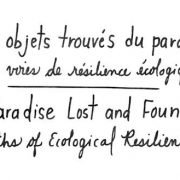 objets trouvés du para
voies de résilience écologiq
aradise Lost and Foun
ths of Ecological Resilien